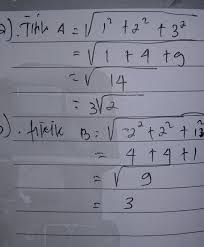 a). Titik A = √1² + 2² + 3²
= √1 + 4 + 9
= √14
= 3√2
b). titik B = √-2² + 2² + 1²
= 4 + 4 + 1
= √9
= 3